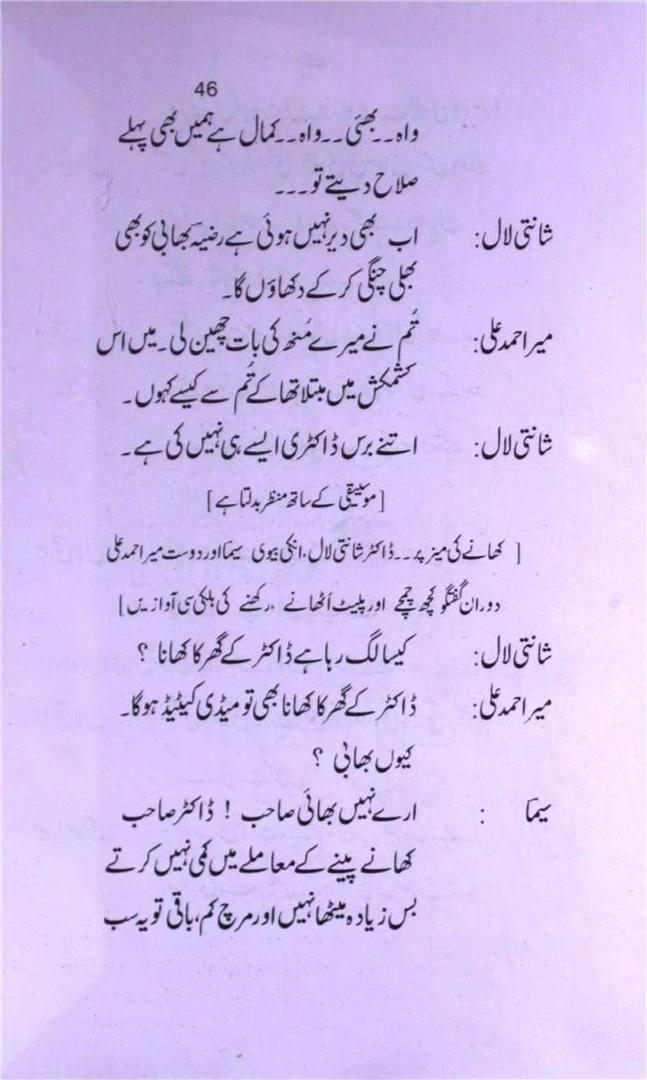 46
واہ۔۔بھئی۔۔واہ۔۔کمال ہے ہمیں بھی پہلے
صلاح دیتے تو۔۔۔
شانتی لال: اب بھی دیر نہیں ہوئی ہے رضیہ بھابی کو بھی
بھلی چنگی کر کے دکھاؤں گا۔
میر احمد علی: تُم نے میرے مُنھ کی بات چھین لی۔ میں اس
کشمکش میں مبتلا تھا کے تُم سے کیسے کہوں۔
شانتی لال: اتنے برس ڈاکٹری ایسے ہی نہیں کی ہے۔
[موسیقی کے ساتھ منظر بدلتا ہے]
[ کھانے کی میز پر۔۔ڈاکٹر شانتی لال، انکی بیوی سیما اور دوست میر احمد علی
دوران گفتگو کچھ چمچے اور پلیٹ اُٹھانے ،رکھنے کی ہلکی سی آوازیں]
شانتی لال: کیسا لگ رہا ہے ڈاکٹر کے گھر کا کھانا ؟
میر احمد علی: ڈاکٹر کے گھر کا کھانا بھی تو میڈی کیٹیڈ ہوگا۔
کیوں بھابی ؟
سیما : ارے نہیں بھائی صاحب ! ڈاکٹر صاحب
کھانے پینے کے معاملے میں کمی نہیں کرتے
بس زیادہ میٹھا نہیں اور مرچ کم، باقی تو یہ سب